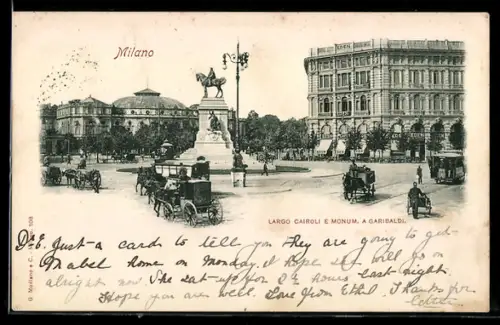 Milano
LARGO CAIROLI E MONUM. A GARIBALDI.
G. Modiano e C.
Just a card to tell you they are going to get
Mabel home on Monday, I hope she will go on
alright now. She sat-up for 2½ hours last night.
Hope you are well. Love from Ethel. Thanks for
letter.